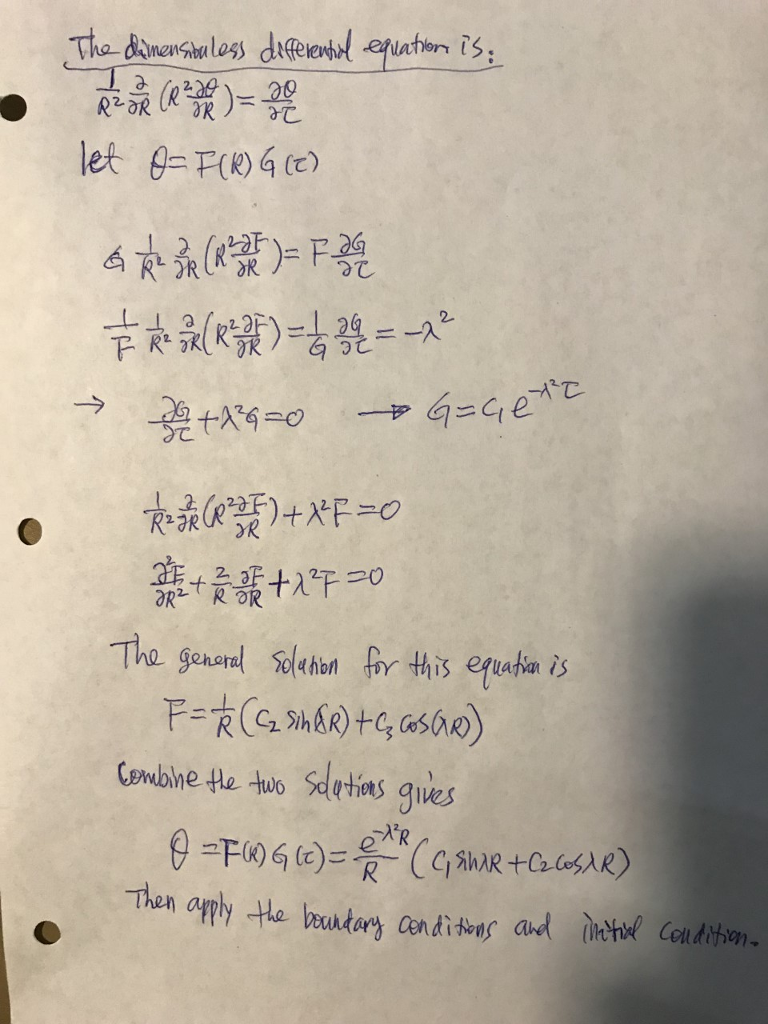 The dimensionless differential equation is:
1/R² ∂/∂R (R² ∂θ/∂R) = ∂θ/∂τ
let θ = F(R) G(τ)
G 1/R² ∂/∂R (R² ∂F/∂R) = F ∂G/∂τ
1/F 1/R² ∂/∂R (R² ∂F/∂R) = 1/G ∂G/∂τ = -λ²
→ ∂G/∂τ + λ²G = 0 → G = C₁e^(-λ²τ)
1/R² ∂/∂R (R² ∂F/∂R) + λ²F = 0
∂²F/∂R² + 2/R ∂F/∂R + λ²F = 0
The general solution for this equation is
F = 1/R (C₂ sin(λR) + C₃ cos(λR))
Combine the two solutions gives
θ = F(R) G(τ) = e^(-λ²R)/R (C₁ sinλR + C₂ cosλR)
Then apply the boundary conditions and initial condition.